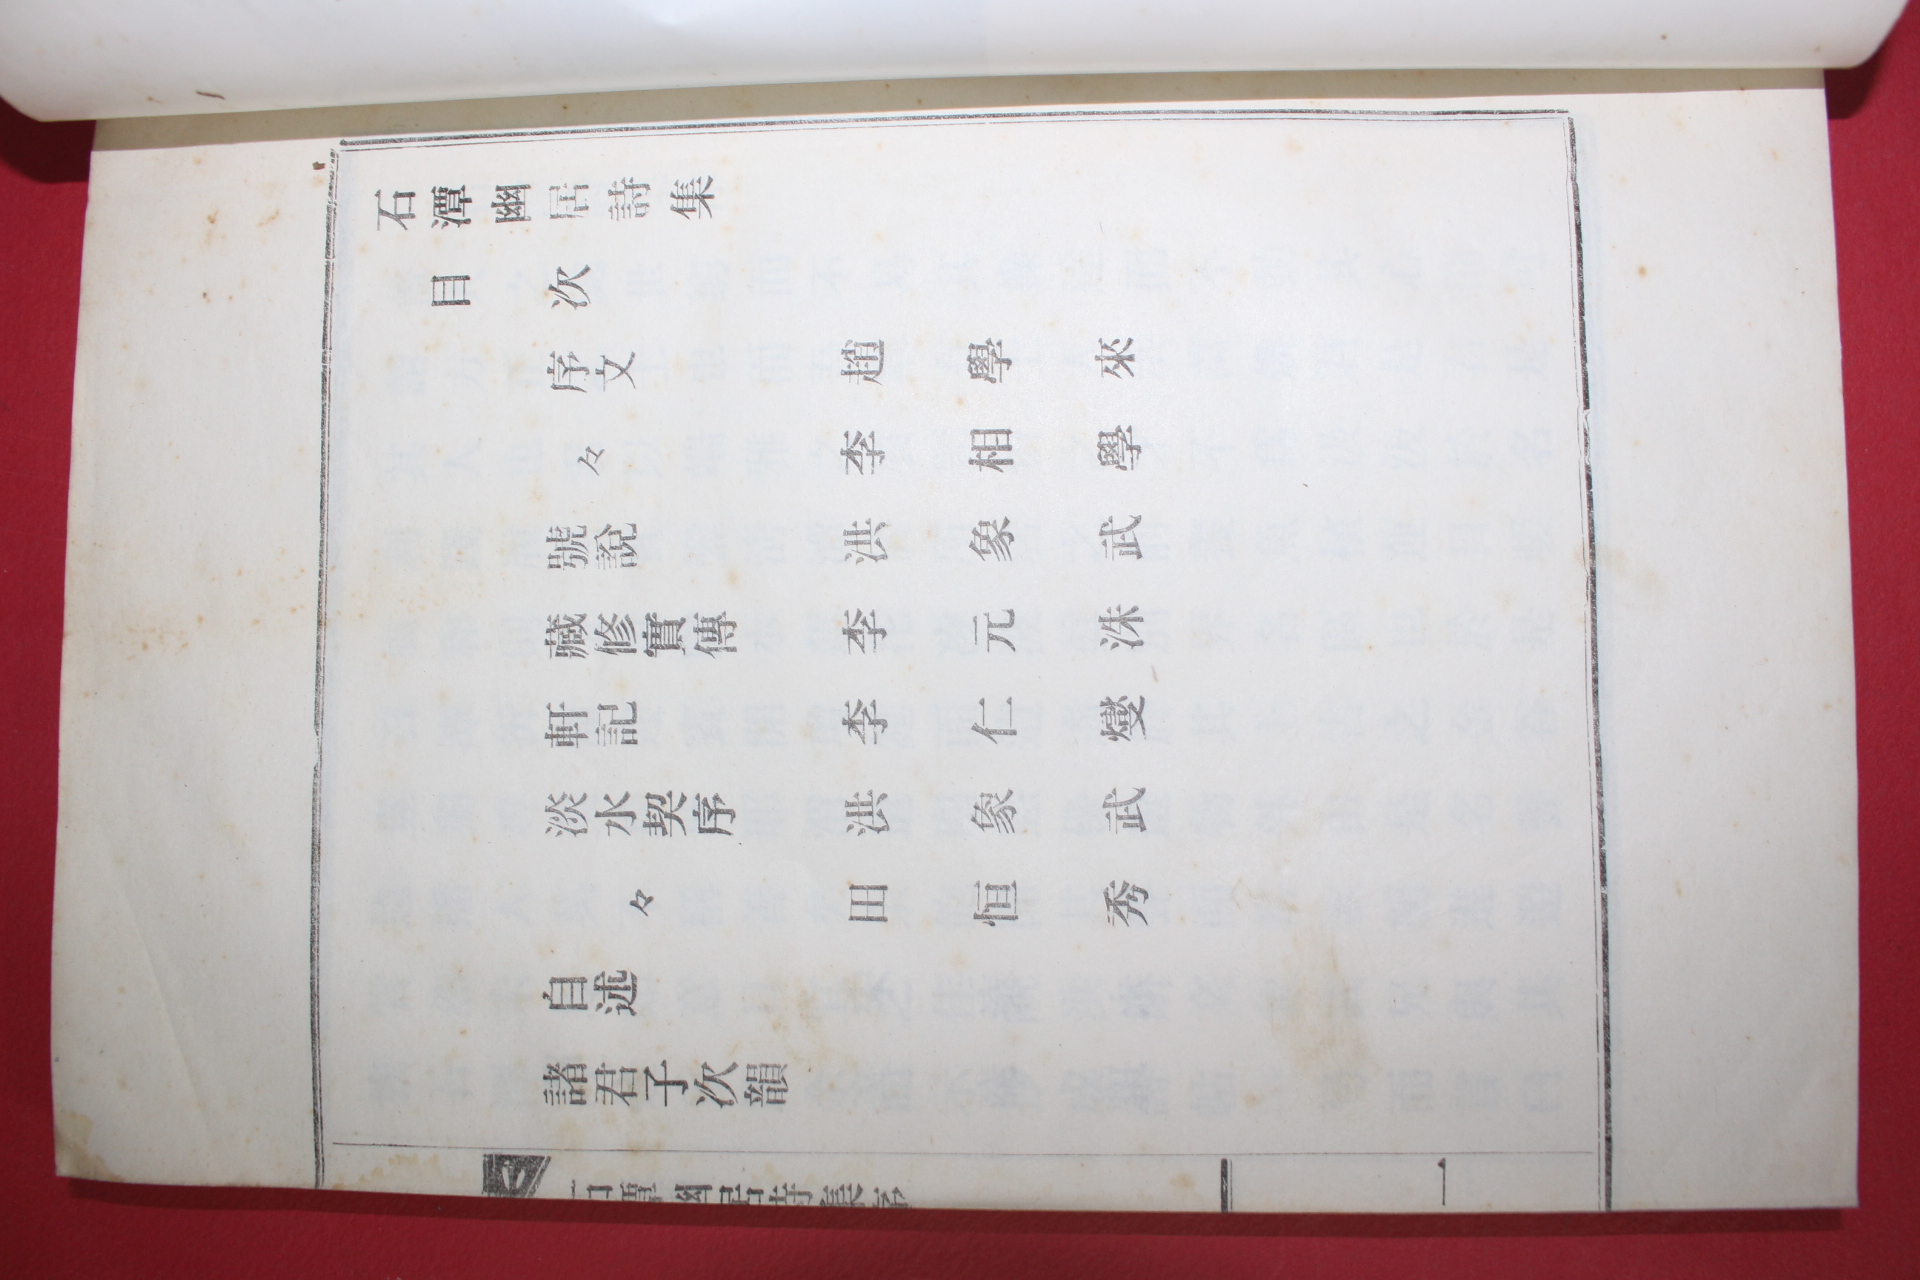 石潭幽居詩集
目次
序文 趙學來
々 李相學
號說 洪象武
藏修實傳 李元洙
軒記 李仁燮
淡水契序 洪象武
々 田恒秀
自述
諸君子次韻
石潭幽居詩集序 一